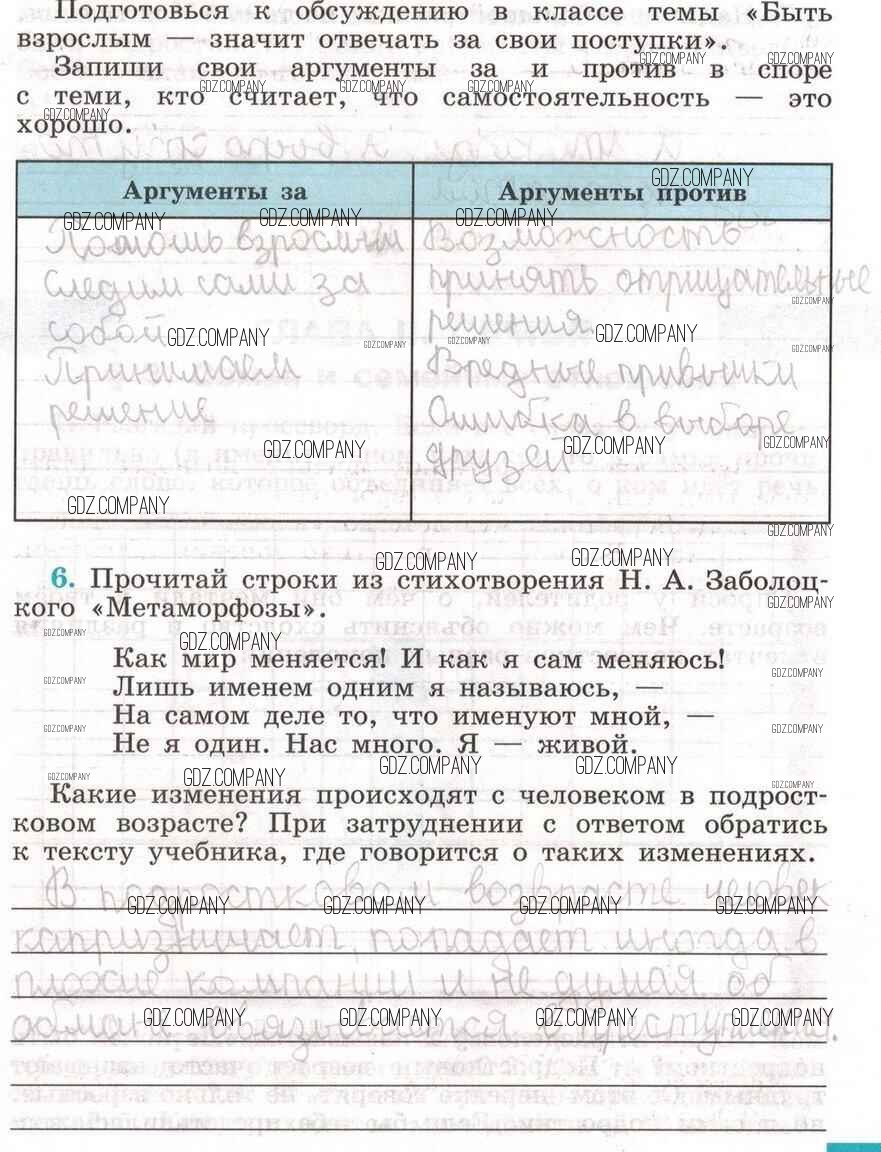 Подготовься к обсуждению в классе темы «Быть
взрослым — значит отвечать за свои поступки».
Запиши свои аргументы за и против в споре
с теми, кто считает, что самостоятельность — это
хорошо.
Аргументы за
Помощь взрослым
Следим сами за
собой
Принимаем
решение
Аргументы против
Возможность
принять отрицательные
решения
Вредные привычки
Ошибка в выборе
друзей
6. Прочитай строки из стихотворения Н. А. Заболоц-
кого «Метаморфозы».
Как мир меняется! И как я сам меняюсь!
Лишь именем одним я называюсь, —
На самом деле то, что именуют мной, —
Не я один. Нас много. Я — живой.
Какие изменения происходят с человеком в подрост-
ковом возрасте? При затруднении с ответом обратись
к тексту учебника, где говорится о таких изменениях.
В подростковом возврасте человек
капризничает, попадает иногда в
плохие компании и не думая об
GDZ.COMPANY